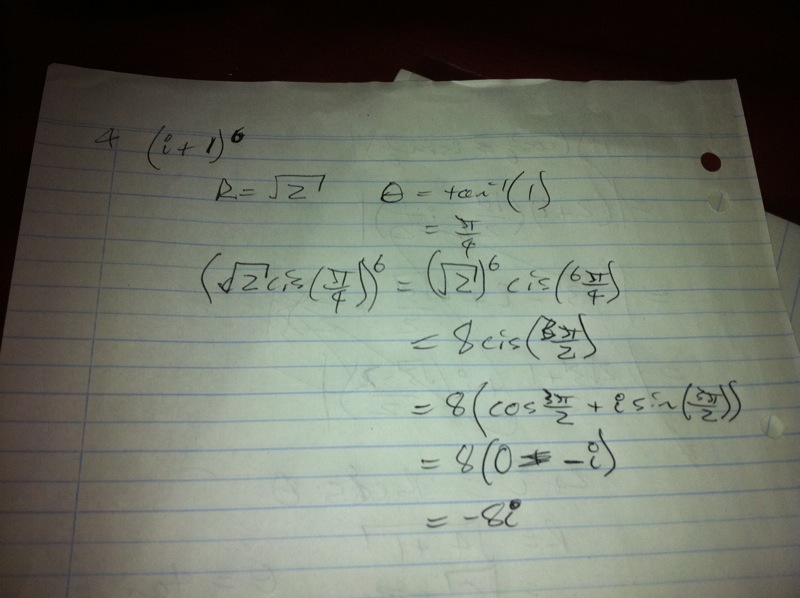 4 (i+1)^6
R = √2 θ = tan⁻¹(1)
= π/4
(√2 cis(π/4))^6 = (√2)^6 cis(6π/4)
= 8 cis(3π/2)
= 8(cos 3π/2 + i sin(3π/2))
= 8(0 + -i)
= -8i